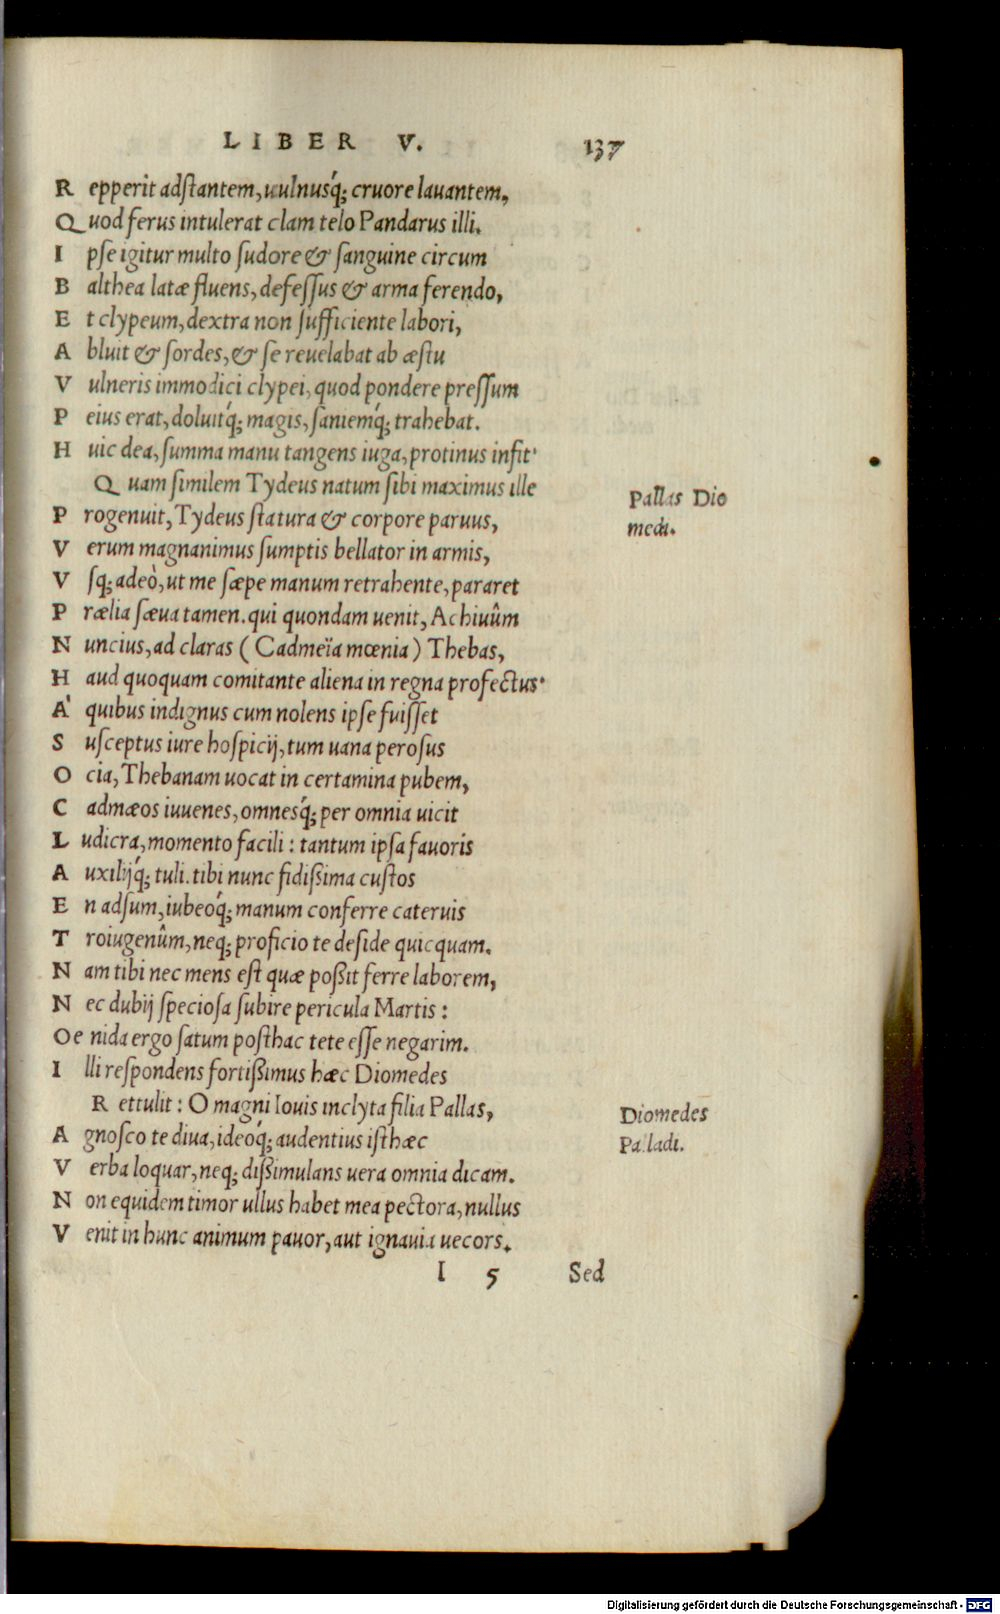 LIBER V. 137
Repperit adstantem, uulnusq́; cruore lauantem,
Quod ferus intulerat clam telo Pandarus illi.
Ipse igitur multo sudore & sanguine circum
Balthea latæ fluens, defessus & arma ferendo,
Et clypeum, dextra non sufficiente labori,
Abluit & sordes, & se reuelabat ab æstu
Vulneris immodici clypei, quod pondere pressum
Peius erat, doluitq́; magis, saniemq́; trahebat.
Huic dea, summa manu tangens iuga, protinus infit·
Quam similem Tydeus natum sibi maximus ille
Pallas Dio
Progenuit, Tydeus statura & corpore paruus,
medi.
Verum magnanimus sumptis bellator in armis,
Vsq; adeò, ut me sæpe manum retrahente, pararet
Prælia sæua tamen. qui quondam uenit, Achiuûm
Nuncius, ad claras (Cadmeïa mœnia) Thebas,
Haud quoquam comitante aliena in regna profectus·
A' quibus indignus cum nolens ipse fuisset
Susceptus iure hospicij, tum uana perosus
Ocia, Thebanam uocat in certamina pubem,
Cadmæos iuuenes, omnesq́; per omnia uicit
Ludicra, momento facili: tantum ipsa fauoris
Auxilijq́; tuli. tibi nunc fidißima custos
En adsum, iubeoq́; manum conferre cateruis
Troiugenûm, neq; proficio te deside quicquam.
Nam tibi nec mens est quæ poßit ferre laborem,
Nec dubij speciosa subire pericula Martis:
Oenida ergo satum posthac tete esse negarim.
Illi respondens fortißimus hæc Diomedes
Rettulit: O magni Iouis inclyta filia Pallas,
Diomedes
Agnosco te diua, ideoq́; audentius isthæc
Palladi.
Verba loquar, neq; dißimulans uera omnia dicam.
Non equidem timor ullus habet mea pectora, nullus
Venit in hunc animum pauor, aut ignauia uecors.
I 5 Sed
Digitalisierung gefördert durch die Deutsche Forschungsgemeinschaft - DFG